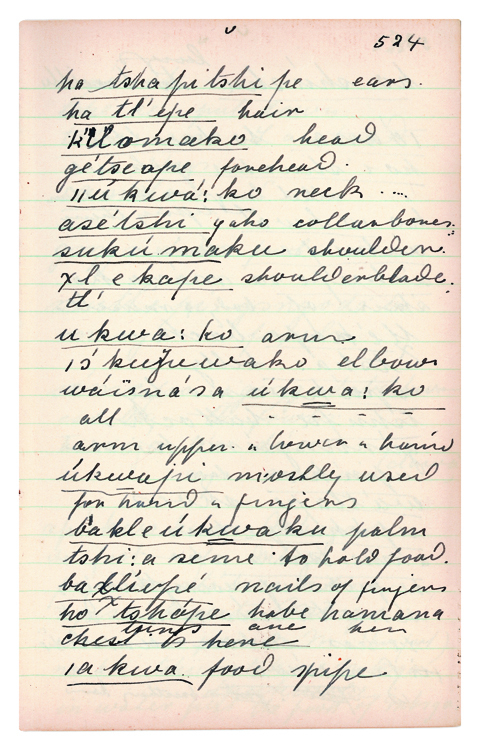 524
ha tshapitshi pe ears.
ha tl'epe hair
head
getseape forehead.
ukwa: ko neck ...
asétshi yoko collarbones.
sukú maku shoulder.
xl e kape shoulderblade.
tl'
u kwa: ko arm
elbow
wáïsnása úkwa: ko
all
arm upper " lower " hand
úkwapi mostly used
for hand " fingers
bakle úkwaku palm
tshi: a seme to hold food.
nails of fingers
ho tshápe hobe hamana
things are her
chest is here
ia kwa food pipe